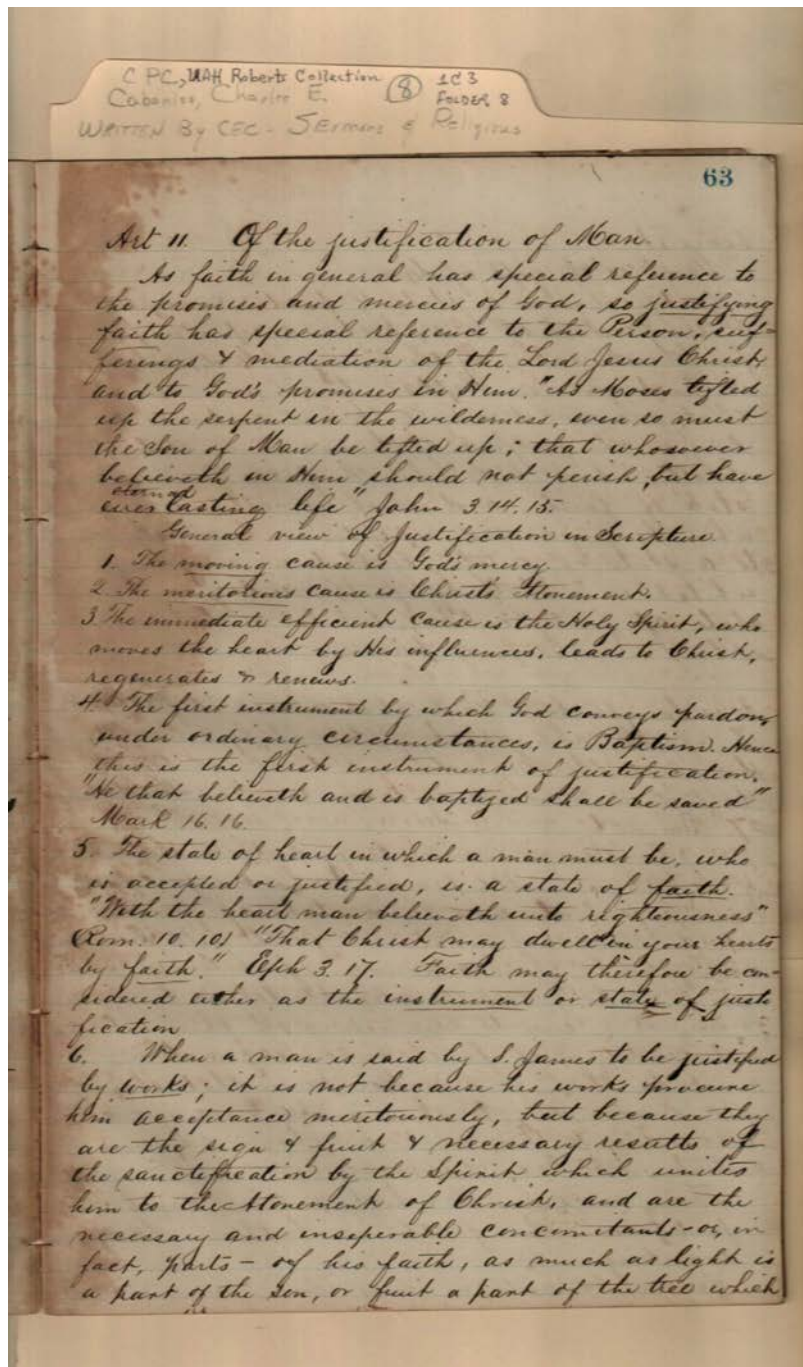 C PC, UAH Roberts Collection (8) 1C3
Cabaniss, Charles E. FOLDER 8
WRITTEN By CEC - Sermons & Religious
63
Art 11. Of the justification of Man.
As faith in general has special reference to
the promises and mercies of God, so justifying
faith has special reference to the Person, suf=
ferings & mediation of the Lord Jesus Christ,
and to God's promises in Him. "As Moses lifted
up the serpent in the wilderness, even so must
the Son of Man be lifted up; that whosoever
believeth in Him should not perish, but have
eternal
everlasting life" John 3.14.15.
General view of Justification in Scripture
1. The moving cause is God's mercy.
2. The meritorious cause is Christ's Atonement.
3 The immediate efficient cause is the Holy Spirit, who
moves the heart by His influences, leads to Christ,
regenerates & renews.
4. The first instrument by which God conveys pardon,
under ordinary circumstances, is Baptism. Hence
this is the first instrument of justification.
"He that believeth and is baptized shall be saved"
Mark 16.16.
5. The state of heart in which a man must be, who
is accepted or justified, is a state of faith.
"With the heart man believeth unto righteousness"
(Rom. 10.10) "That Christ may dwell in your hearts
by faith." Eph 3.17. Faith may therefore be con-
sidered either as the instrument or state of justi
fication
6. When a man is said by S. James to be justified
by works; it is not because his works procure
him acceptance meritoriously, but because they
are the sign & fruit & necessary results of
the sanctification by the Spirit which unites
him to the Atonement of Christ, and are the
necessary and inseperable concomitants - or, in
fact, parts - of his faith, as much as light is
a part of the sun, or fruit a part of the tree which